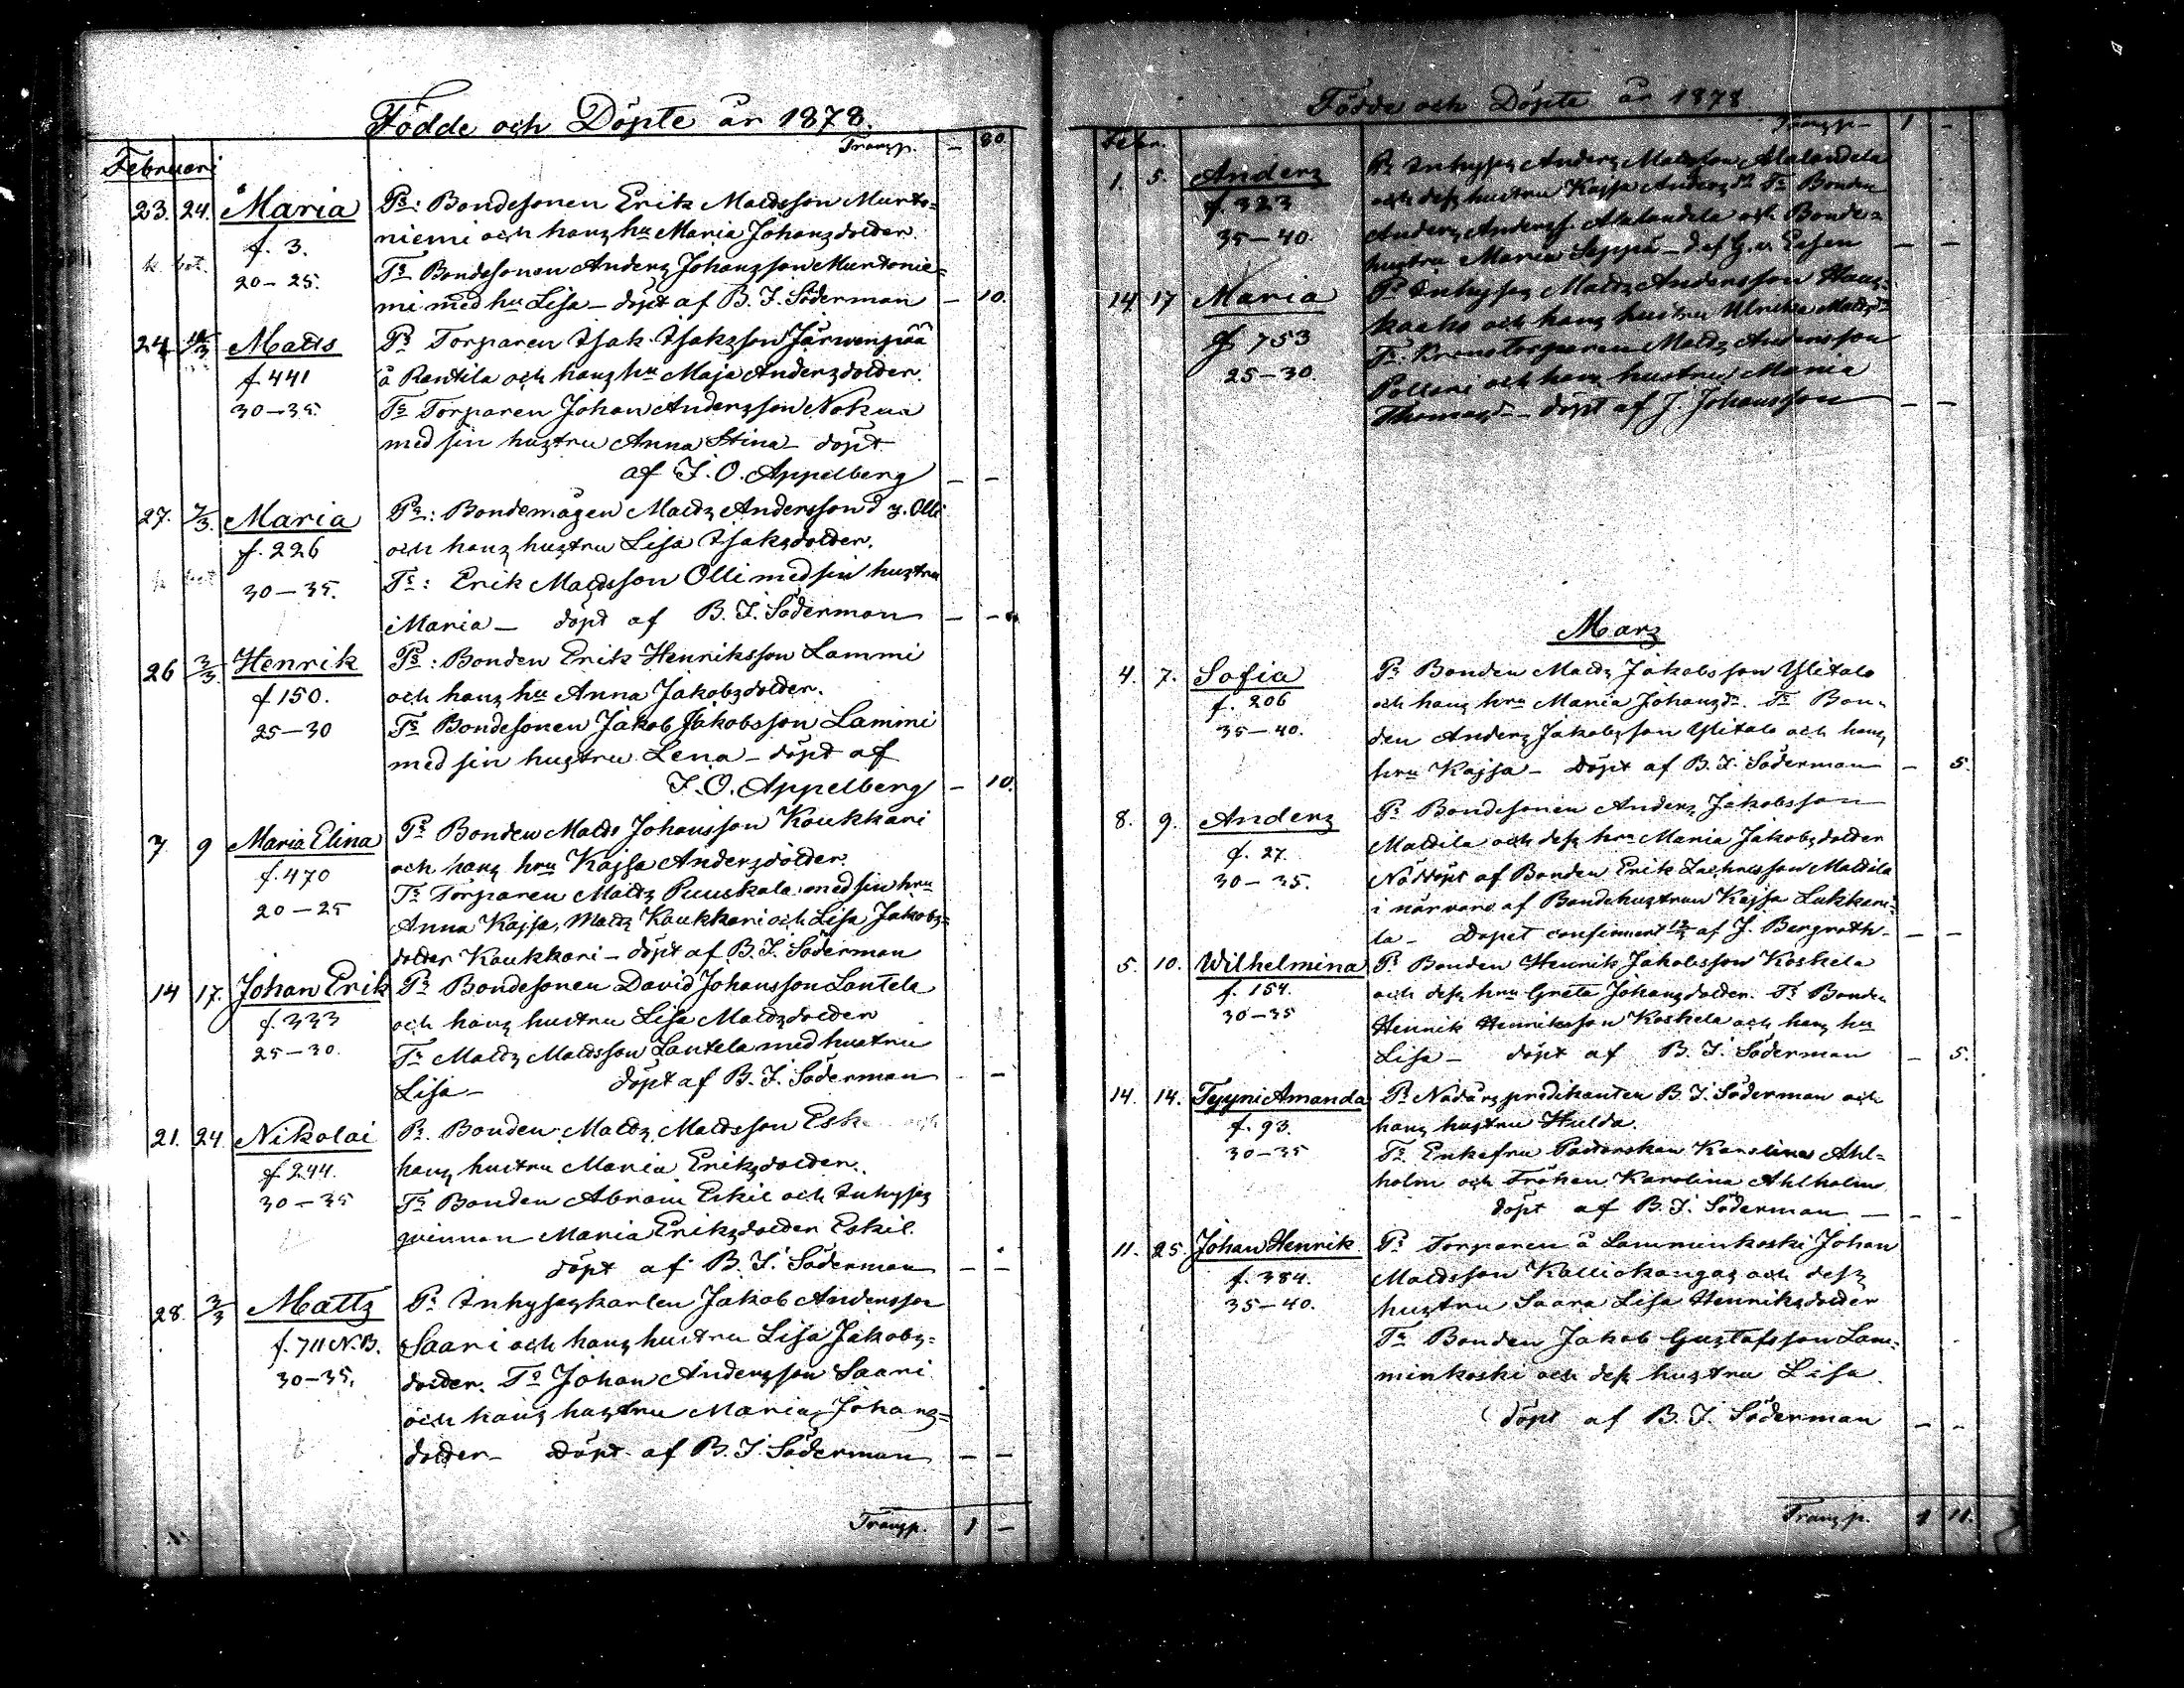 Födde och Döpte år 1878.
Transp. — 80.
Februari
23. 24. Maria Ps: Bondesonen Erik Mattsson Murto=
f. 3. niemi och hans hu Maria Johansdotter.
20–25. Ts Bondesonen Anders Johansson Murtonie=
mi med hu Lisa – döpt af B. J. Söderman — 10.
24. Matts Ps Torparen Isak Isaksson Järwenpää
f. 441 å Rantila och hans hu Maja Andersdotter.
30–35. Ts Torparen Johan Andersson Nokua
med sin hustru Anna Stina – döpt
af J. O. Appelberg — —
27. 7/3. Maria Ps: Bondemågen Matts Andersson d. y. Olli
f. 226 och hans hustru Lisa Isaksdotter.
30–35. Ts: Erik Mattsson Olli med sin hustru
Maria – döpt af B. J. Söderman — —
26 3/3. Henrik Ps: Bonden Erik Henriksson Lammi
f 150. och hans hu Anna Jakobsdotter.
25–30 Ts Bondesonen Jakob Jakobsson Lammi
med sin hustru Lena – döpt af
J. O. Appelberg — 10.
7 9 Maria Elina Ps Bonden Matts Johansson Koukkari
f. 470 och hans hru Kajsa Andersdotter.
20–25 Ts Torparen Matts Puuskala med sin hru
Anna Kajsa, Matts Koukkari och Lisa Jakobs=
dotter Koukkari – döpt af B. J. Söderman
14 17. Johan Erik Ps Bondesonen David Johansson Lantela
f. 333 och hans hustru Lisa Mattsdotter
25–30. Ts Matts Mattsson Lantela med hustru
Lisa – döpt af B. J. Söderman —
21. 24. Nikolai Ps. Bonden Matts Mattsson Esk och
f 244. hans hustru Maria Eriksdotter.
30–35 Ts Bonden Abram Eskil och Inhyses
qvinnan Maria Eriksdotter Eskil.
döpt af B. J. Söderman — —
28. 3/3 Matts Ps Inhyseskarlen Jakob Andersson
f. 711 N.B. Saari och hans hustru Lisa Jakobs=
30–35. dotter. Ts Johan Andersson Saari
och hans hustru Maria Johans=
dotter – Döpt af B. J. Söderman — —
Transp. 1 —
Födde och Döpte år 1878
Transp — 1 —
Febr.
1. 5. Anders Ps Inhyses Anders Mattsson Alalantela
f. 323 och dess hustru Kajsa Andersdr Ts Bonden
35–40. Anders Anderss. Alalantela och Bonde=
hustru Maria Seppä – d. af G. v. Essen — —
14 17 Maria Ps Inhyses Matts Andersson Haus=
f 753 kaako och hans hustru Ulrika Mattsdr
25–30. Ts. Kronotorparen Matts Andersson
Pollari och hans hustru Maria
Thomasdr – döpt af J. Johansson — —
Mars
4. 7. Sofia Ps Bonden Matts Jakobsson Ylitalo
f. 206 och hans hru Maria Johansdr. Ts Bon=
35–40. den Anders Jakobsson Ylitalo och hans
hru Kajsa – Döpt af B. J. Söderman — 5.
8. 9. Anders Ps Bondesonen Anders Jakobsson
f. 27. Mattila och dess hru Maria Jakobsdotter
30–35. Nöddöpt af Bonden Erik Zachrisson Mattila
i närvaro af Bondehustrun Kajsa Lukkari=
la – Dopet confirmert af J. Bergroth — —
5. 10. Wilhelmina Ps Bonden Henrik Jakobsson Koskela
f. 154. och dess hru Greta Johansdotter. Ts Bonden
30–35 Henrik Henriksson Koskela och hans hu
Lisa – döpt af B. J. Söderman — 5.
14. 14. Tyyni Amanda Ps Nådårspredikanten B. J. Söderman och
f. 93. hans hustru Hulda.
30–35 Ts. Enkefru Pastorskan Karolina Ahl=
holm och Fröken Karolina Ahlholm
döpt af B. J. Söderman — — —
11. 25. Johan Henrik Ps Torparen å Lamminkoski Johan
f. 384. Mattsson Kalliokangas och dess
35–40. hustru Saara Lisa Henriksdotter
Ts Bonden Jakob Gustafsson Lam=
minkoski och dess hustru Lisa.
döpt af B. J. Söderman — —
Transp. 1 11.